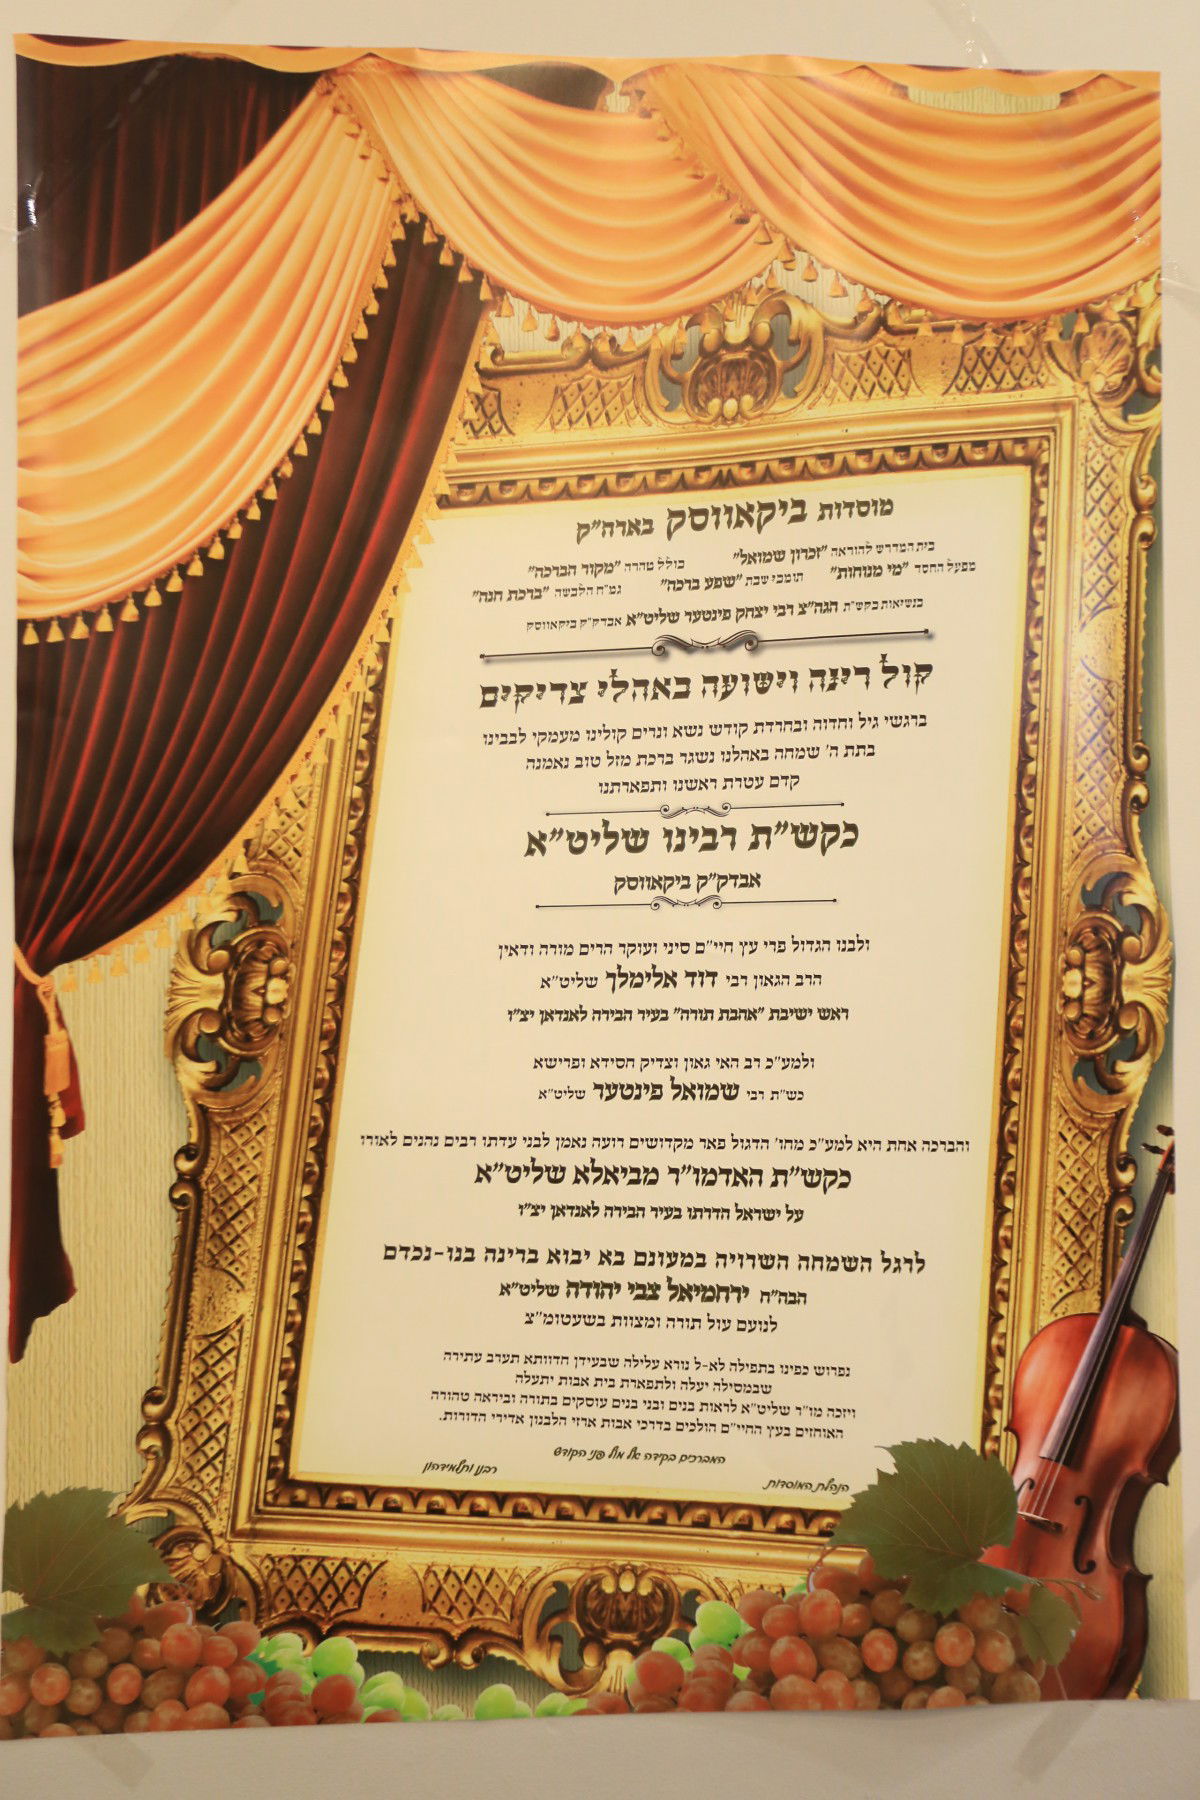 מוסדות ביקאווסק בארה"ק
בית המדרש להוראה "זכרון שמואל" כולל טהרה "מקור הברכה"
מפעל החסד "מי מנוחות" תומכי שבת "שפע ברכה" גמ"ח הלבשה "ברכת חנה"
בנשיאות כקש"ת הגה"צ רבי יצחק פינטער שליט"א אבדק"ק ביקאווסק
קול רינה וישועה באהלי צדיקים
ברגשי גיל וחדוה ובחרדת קודש נשא ונרים קולינו מעמקי לבבינו
בתת ה' שמחה באהלנו נשגר ברכת מזל טוב נאמנה
קדם עטרת ראשנו ותפארתנו
כקש"ת רבינו שליט"א
אבדק"ק ביקאווסק
ולבנו הגדול פרי עץ חיי"ם סיני ועוקר הרים מורה ודאין
הרב הגאון רבי דוד אלימלך שליט"א
ראש ישיבת "אהבת תורה" בעיר הבירה לאנדאן יצ"ו
ולמע"כ רב האי גאון וצדיק חסידא ופרישא
כש"ת רבי שמואל פינטער שליט"א
והברכה אחת היא למע"כ מחו' הדגול פאר מקדושים רועה נאמן לבני עדתו רבים נהנים לאורו
כקש"ת האדמו"ר מביאלא שליט"א
על ישראל הדרתו בעיר הבירה לאנדאן יצ"ו
לרגל השמחה השרויה במעונם בא יבוא ברינה בנו-נכדם
הבה"ח ירחמיאל צבי יהודה שליט"א
לנועם עול תורה ומצוות בשעטומ"צ
נפרוש כפינו בתפילה לא-ל נורא עלילה שבעידן חדוותא תערב עתירה
שבמסילה יעלה ולתפארת בית אבות יתעלה
ויזכה מו"ר שליט"א לראות בנים ובני בנים עוסקים בתורה וביראה טהורה
האוחזים בעץ החיי"ם הולכים בדרכי אבות ארזי הלבנון אדירי הדורות.
המברכים בקידה אל מול פני הקודש
הנהלת המוסדות רבנו ותלמידהון